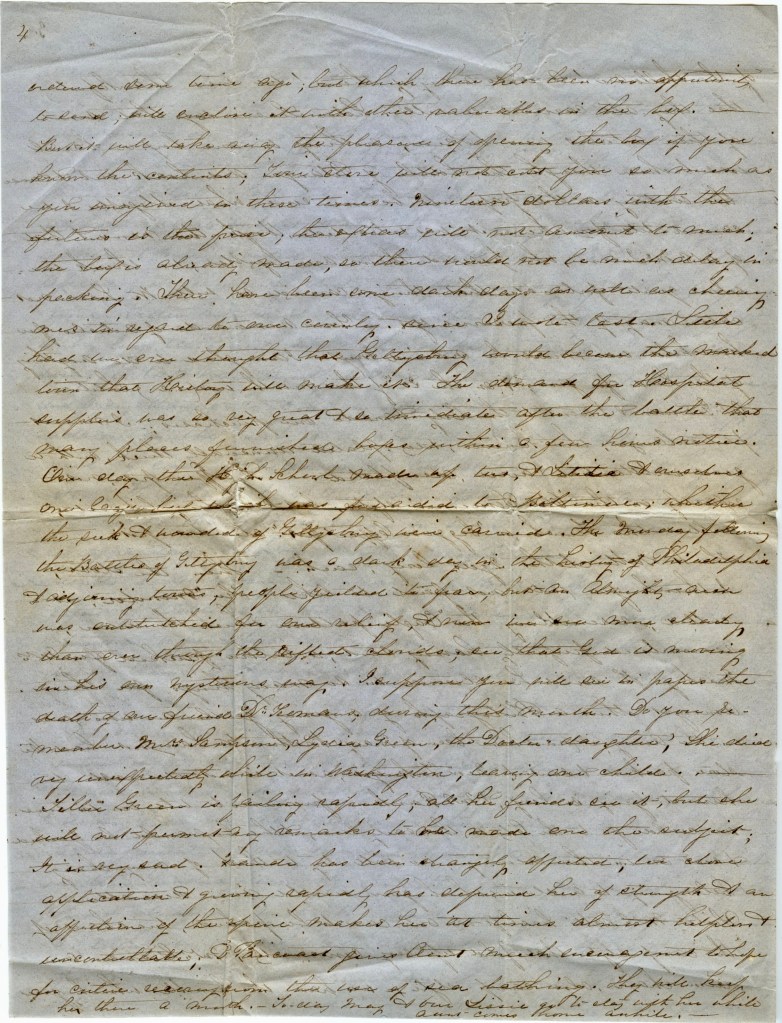 4
some time ago, but which there has been no opportunity
to send will enclose it with other valuables in the box. —
But it will take away the pleasure of opening the box if you
know the contents; Your stove will not cost you so much as
you imagined in these times. Nineteen dollars with the
fixtures is the price, will not amount to much;
the box is already made, so there would not be much delay in
packing. There have been some dark days as well as cheering
ones in regard to our country since I wrote last. Little
had we ever thought that Gettysburg would become the marked
town that History will make it. The demand for Hospital
supplies was so very great & so immediate after the battle that
many places furnished boxes within a few hours notice.
One day the made up two, & Letitia & ourselves
one large to Baltimore, whither
the sick & wounded of Gettysburg were carried. The Monday following
the Battle of Gettysburg was a dark day in the history of Philadelphia
& adjoining towns, people yielded to fear, but an Almighty arm
was outstretched for our relief, & now we see more clearly
than ever through the rifted clouds, see that God is moving
in his own mysterious way. I suppose you will see in papers the
death of our friend Dr. during this month. Do you re-
member Mrs Sampson, Lydia Green, the Doctor's daughter, She died
very unexpectedly while in Washington, leaving one child. —
Tillie Green is failing rapidly, all her friends see it, but she
will not permit any remarks to be made on the subject;
It is very sad. has been strangely affected, too close
application & growing rapidly has deprived her of strength & an
affection of the spine makes her at times almost helpless &
uncontrollable; Dr gives Aunt much encouragement to hope
for entire recovery from the use of sea bathing. They will keep
her there a month. — To day May & our Lizzie go to stay with her while
aunt comes home awhile. —